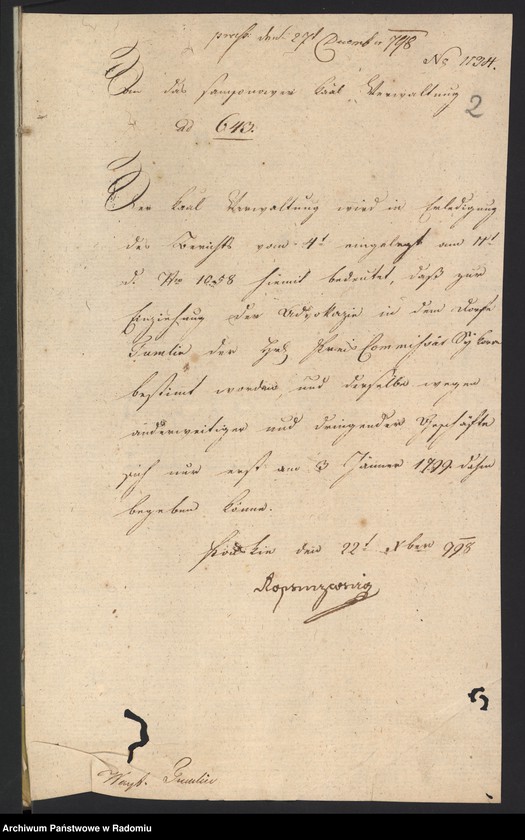 præs. den 27t December 798
No 1194.
An das Samsonower Kaal Verwaltung
2
ad 643.
Der Kaal Verwaltung wird in Erledigung
des Berichts vom 4t eingelegt am 11t
d. Nro 1058 hiemit bedeutet, daß zur
Einziehung der Advokazie in dem Dorfe
Tumlin der Hr Kreis Commissär Sykora
bestimt worden, und derselbe wegen
anderweitiger und dringender Geschäfte
sich nur erst am 3 Jänner 1799 dahin
begeben könne.
Końskie den 22t Xber 798
Woyt. Tumlin
Archiwum Państwowe w Radomiu